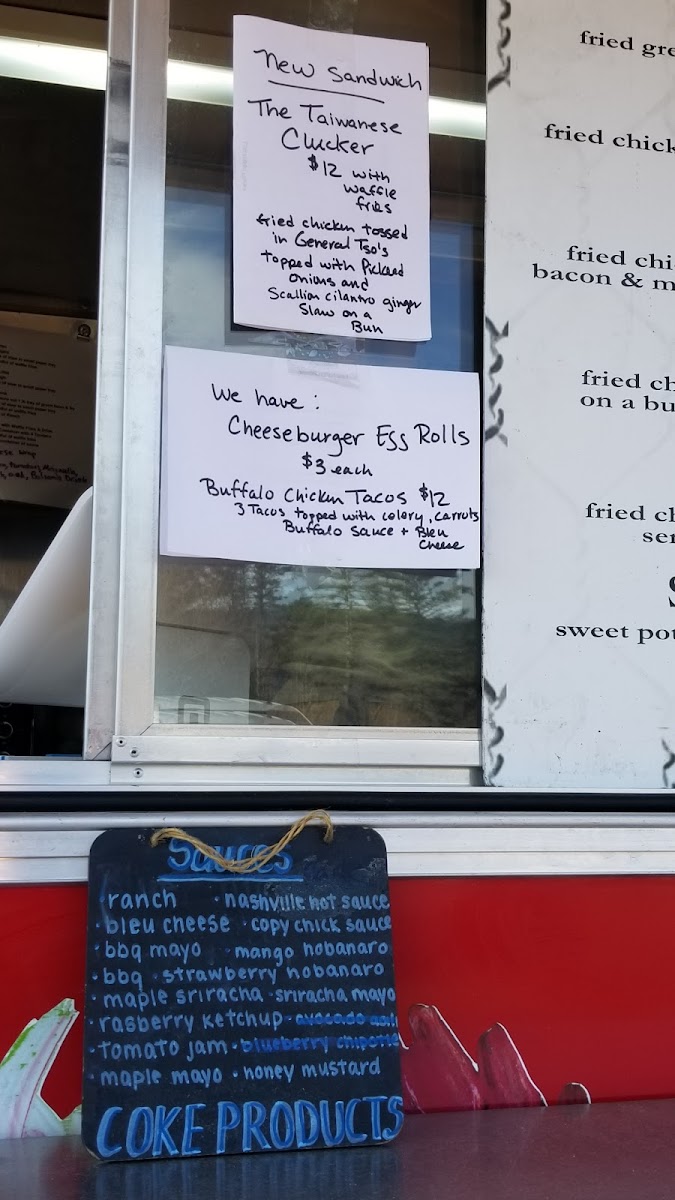 New Sandwich
The Taiwanese
Clucker
$12 with
waffle
fries
fried chicken tossed
in General Tso's
topped with Pickled
onions and
Scallion cilantro ginger
Slaw on a
Bun
We have:
Cheeseburger Egg Rolls
$3 each
Buffalo Chicken Tacos $12
3 Tacos topped with celery, carrots
Buffalo Sauce + Bleu
Cheese
fried gre
fried chick
fried chi
bacon & m
fried ch
on a bu
fried ch
ser
sweet pot
Sauces
·ranch ·nashville hot sauce
·bleu cheese ·copy chick sauce
·bbq mayo ·mango hobanaro
·bbq ·strawberry hobanaro
·maple sriracha ·sriracha mayo
·rasberry ketchup ·avocado aoli
·tomato jam ·blueberry chipotle
·maple mayo ·honey mustard
COKE PRODUCTS